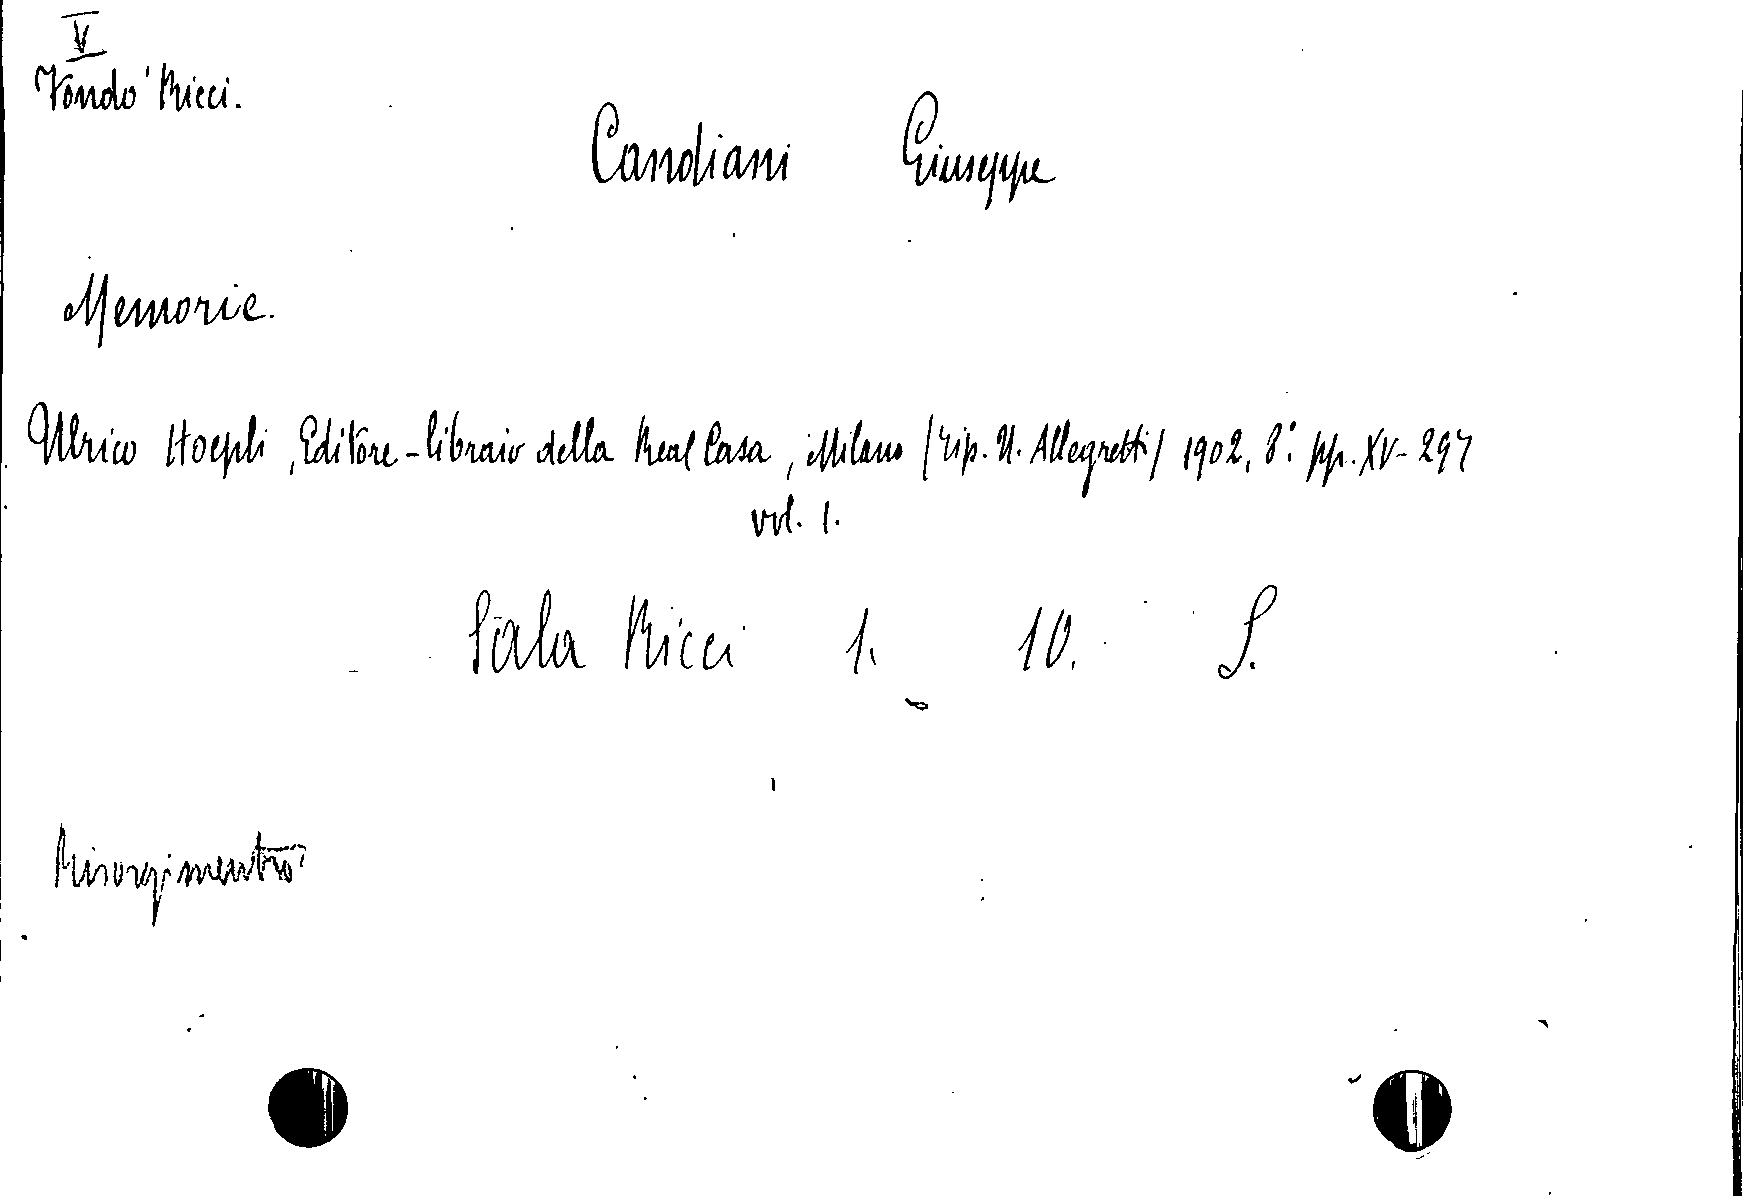 V
Fondo Ricci.
Candiani Giuseppe
Memorie.
Ulrico Hoepli, Editore-libraio della Real Casa, Milano (Tip. U. Allegretti) 1902, 8° pp. XV-297
vol. 1.
Sala Ricci 1. 10. S.
Risorgimento